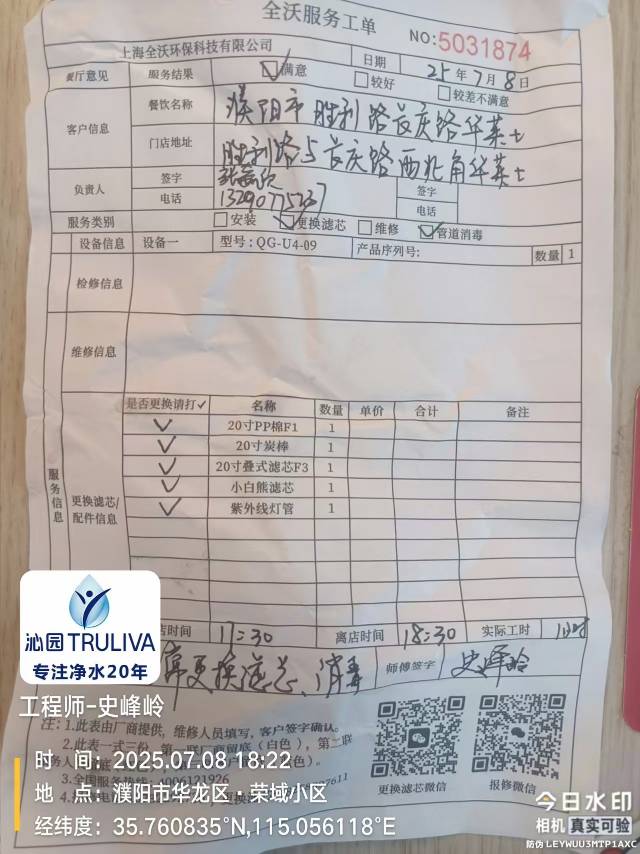 全沃服务工单
NO:5031874
上海全沃环保科技有限公司 日期 25年7月8日
餐厅意见 服务结果 ☑满意 □较好 □较差不满意
客户信息 餐饮名称 濮阳市胜利路长庆路华莱士
门店地址 胜利路与长庆路西北角华莱士
负责人 签字 签字
电话 13290775337 电话
服务类别 □安装 ☑更换滤芯 □维修 ☑管道消毒
设备信息 设备一 型号:QG-U4-09 产品序列号: 数量 1
检修信息
维修信息
服务信息
更换滤芯/配件信息
是否更换请打✓ 名称 数量 单价 合计 备注
✓ 20寸PP棉F1 1
✓ 20寸炭棒 1
✓ 20寸叠式滤芯F3 1
✓ 小白熊滤芯 1
✓ 紫外线灯管 1
店时间 17:30 离店时间 18:30 实际工时
更换滤芯、消毒 师傅签字 史峰岭
注:1.此表由厂商提供,维修人员填写,客户签字确认。
2.此表一式三份,第一联厂商留底(白色),第二联
3.全国服务热线:4006121926
更换滤芯微信 报修微信
沁园TRULIVA
专注净水20年
工程师-史峰岭
时 间:2025.07.08 18:22
地 点:濮阳市华龙区·荣域小区
经纬度:35.760835°N,115.056118°E
今日水印
相机 真实可验
防伪 LEYWUU3MTP1AXC